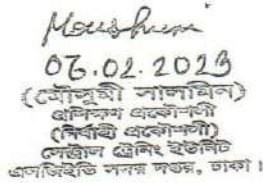 Moushumi
06.02.2023
(মৌসুমী সালমিন)
প্রশিক্ষণ প্রকৌশলী
(নির্বাহী প্রকৌশলী)
সেন্ট্রাল ট্রেনিং ইউনিট
এলজিইডি সদর দপ্তর, ঢাকা।